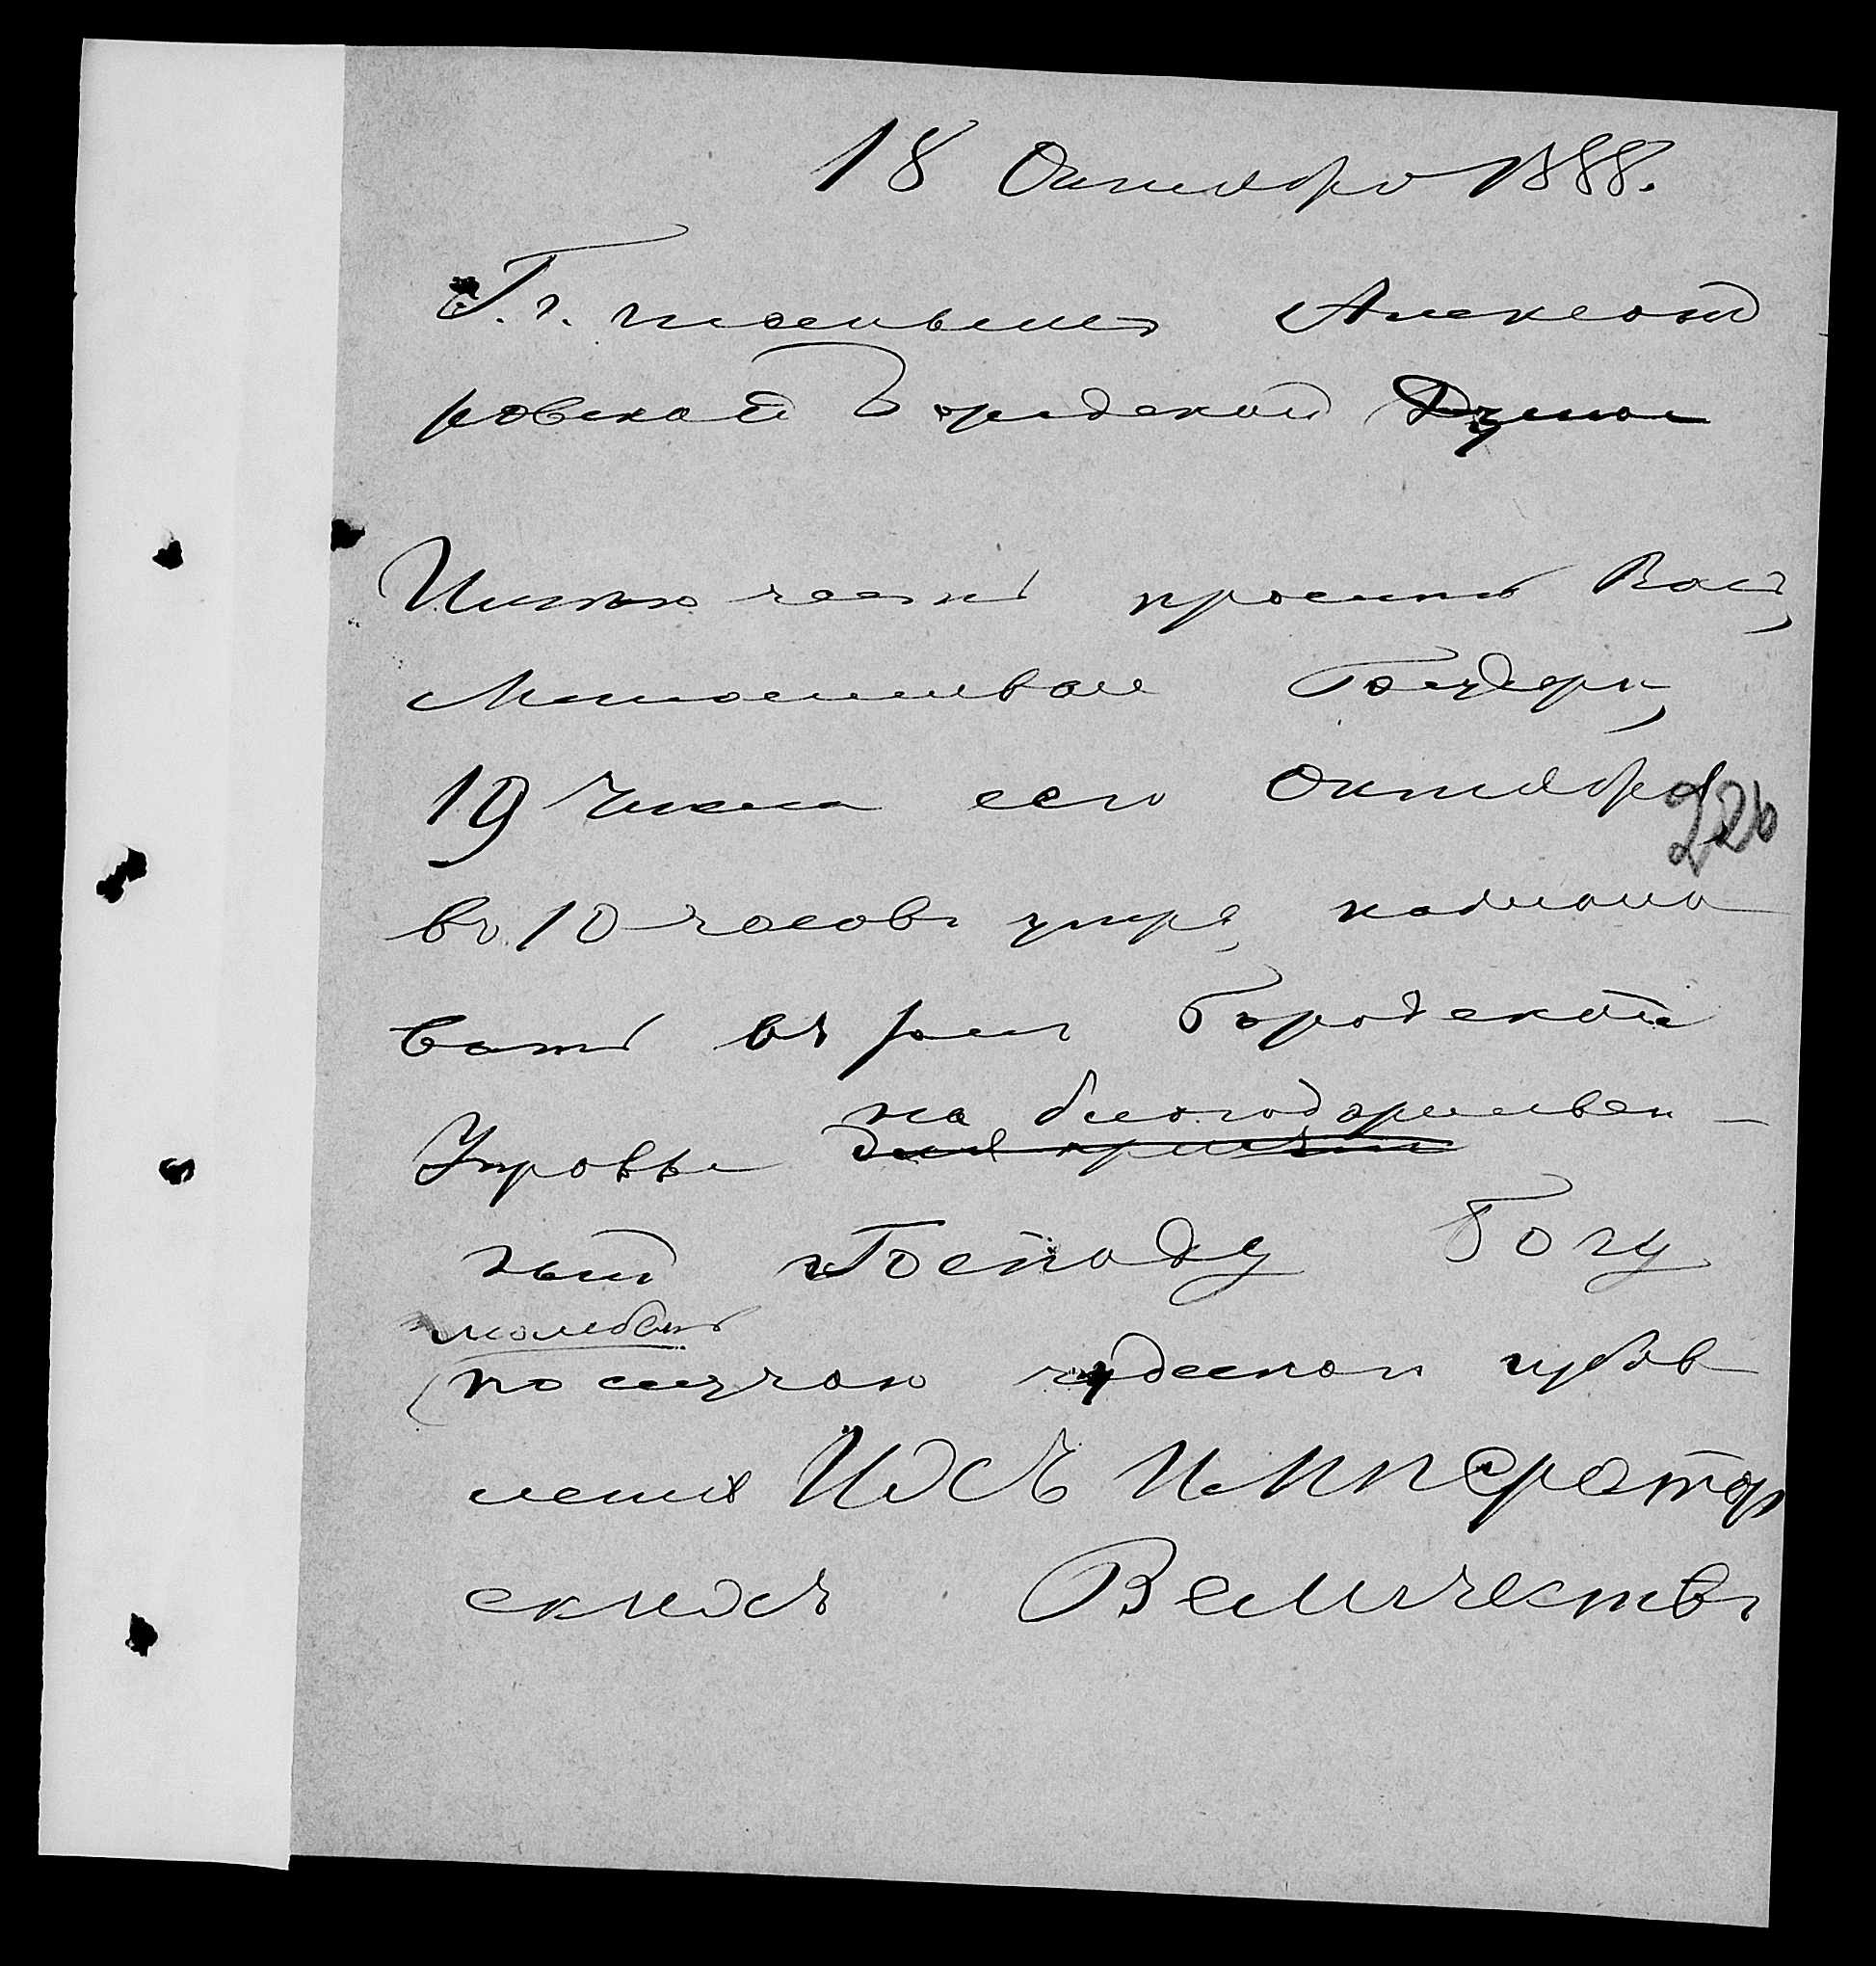 18 Октября 1888.
Г.г. гласнымъ Александ
ровской Городской Думы
Имѣю честь просить Васъ,
Милостивые Государи,
19 числа сего Октября
226
въ 10 часовъ утра, пожало
вать въ залъ Городской
Управы для
на благодарствен-
ный Господу Богу
молебенъ
по случаю чудеснаго избав
ленія ИХЪ ИМПЕРАТОР
СКИХЪ ВЕЛИЧЕСТВЪ